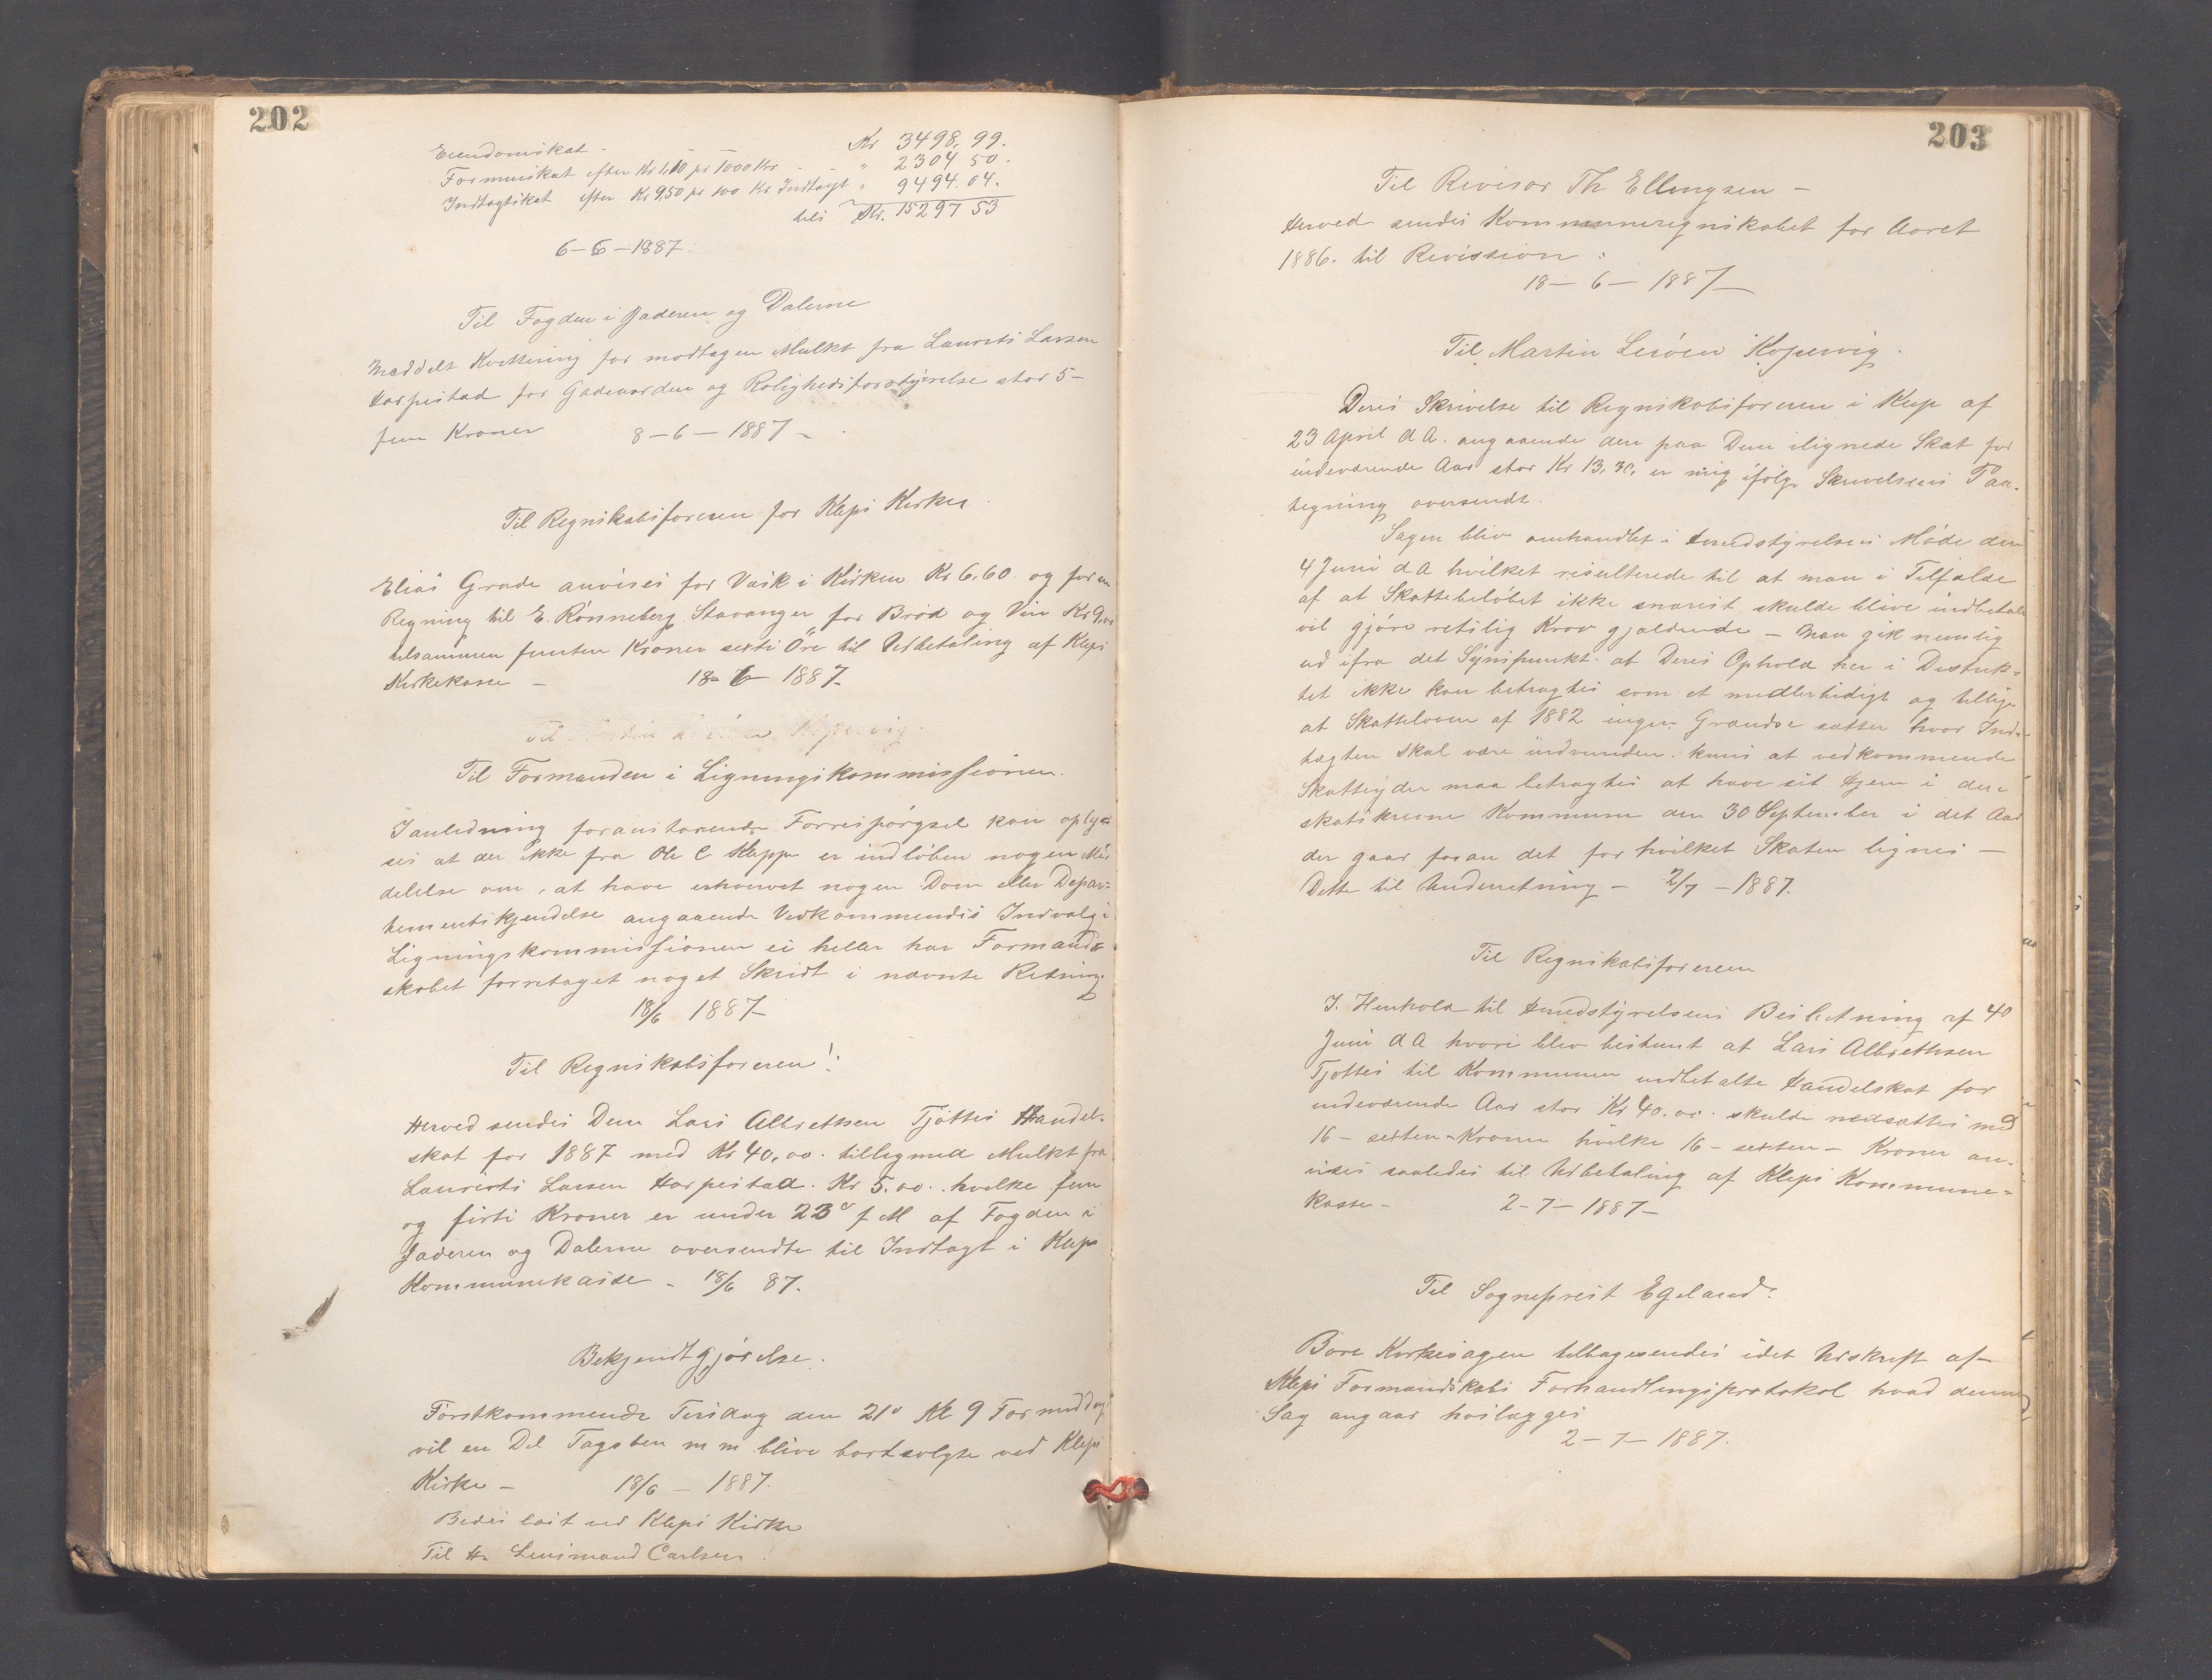 202
Eiendomskat - Kr 3498,99.
Formueskat efter Kr 1,10 pr 1000 Kr - " 2304 50.
Indtægtskat efter Kr 9,50 pr 100 Kr Indtægt " 9494.04.
tils Kr. 15297 53
6-6-1887.
Til Fogden i Jæderen og Dalerne
Meddelt Kvittering for modtagen Mulkt fra Laurits Larsen
Harpestad for Gadeuorden og Rolighedsforstyrrelse stor 5-
fem Kroner 8-6-1887-
Til Regnskabsføreren for Kleps Kirke
Elias Grude anvises for Vask i Kirken Kr 6,60 og for en
Regning til E. Rønneberg Stavanger for Brød og Vin Kr 9,00
tilsammen femten Kroner sexti Øre til Udbetaling af Kleps
Kirkekasse - 18-6-1887-
Til Kopervig.
Til Formanden i Ligningskommissionen.
I anledning foranstaaende Forrespørgsel kan oply-
ses at der ikke fra Ole C Klepp er indløben nogen Med
delelse om, at have erhvervet nogen Dom eller Depar-
tementskjendelse angaaende Vedkommendes Indvalg i
Ligningskommissionen ei heller har Formand-
skabet forretaget noget Skridt i nævnte Retning.
18/6 1887-
Til Regnskabsføreren!
Herved sendes Dem Lars Albrethsen Tjøttes Handel-
skat for 1887 med Kr 40,00. tilligmed Mulkt fra
Laurits Larsen Harpestad. Kr 5.00. hvilke fem
og firti Kroner er under 23de f M af Fogden i
Jæderen og Dalerne oversendte til Indtægt i Kleps
Kommunekasse - 18/6 87.
Bekjendtgjørelse.
Førstkommende Tirsdag den 21de Kl 9 Formiddag
vil en Del Tagsten m m blive bortsolgte ved Kleps
Kirke - 18/6 - 1887.
Bedes læst ved Kleps Kirke
Til Hr Lensmand Carlsen!
203
Til Revisor Th Ellingsen -
Herved sendes Kommuneregnskabet for Aaret
1886. til Revission:
18-6-1887-
Til Martin Kopervig.
Deres Skrivelse til Regnskabsføreren i Klep af
23 April d A. angaaende den paa Dem ilignede Skat for
indeværende Aar stor Kr 13,30, er mig ifølge Skrivelsens Paa-
tegning oversendt.
Sagen blev omhandlet i Herredstyrelsens Møde den
4 Juni d A hvilket resulterede til at man i Tilfælde
af at Skattebeløbet ikke snarest skulde blive indbetalt
vil gjøre retslig Krav gjældende - Man gik nemlig
ud ifra det Synspunkt. at Deres Ophold her i Distrik-
tet ikke kan betragtes som et midlertidigt og tillige
at Skatteloven af 1882 ingen Grændse sætter hvor Ind-
tægten skal være indvunden. kuns at vedkommende
Skatteyder maa betragtes at have sit Hjem i den
skatskrevne Kommune den 30 September i det Aar
der gaar foran det for hvilket Skaten lignes -
Dette til Underretning - 2/7 - 1887.
Til Regnskabsføreren
I. Henhold til Herredstyrelsens Beslutning af 4de
Juni d A hvori blev bestemt at Lars Albrethsen
Tjøttes til Kommunen indbetalte Handelskat for
indeværende Aar stor Kr 40.00. skulde nedsættes med
16 - sexten - Kroner hvilke 16 - sexten - Kroner an-
vises saaledes til Udbetaling af Kleps Kommune-
kasse - 2-7-1887-
Til Sogneprest Egeland.
Bore Kirkesagen tilbagesendes idet Udskrift af
Kleps Formandskabs Forhandlingsprotokol hvad denne
Sag angaar hoslægges
2-7-1887.